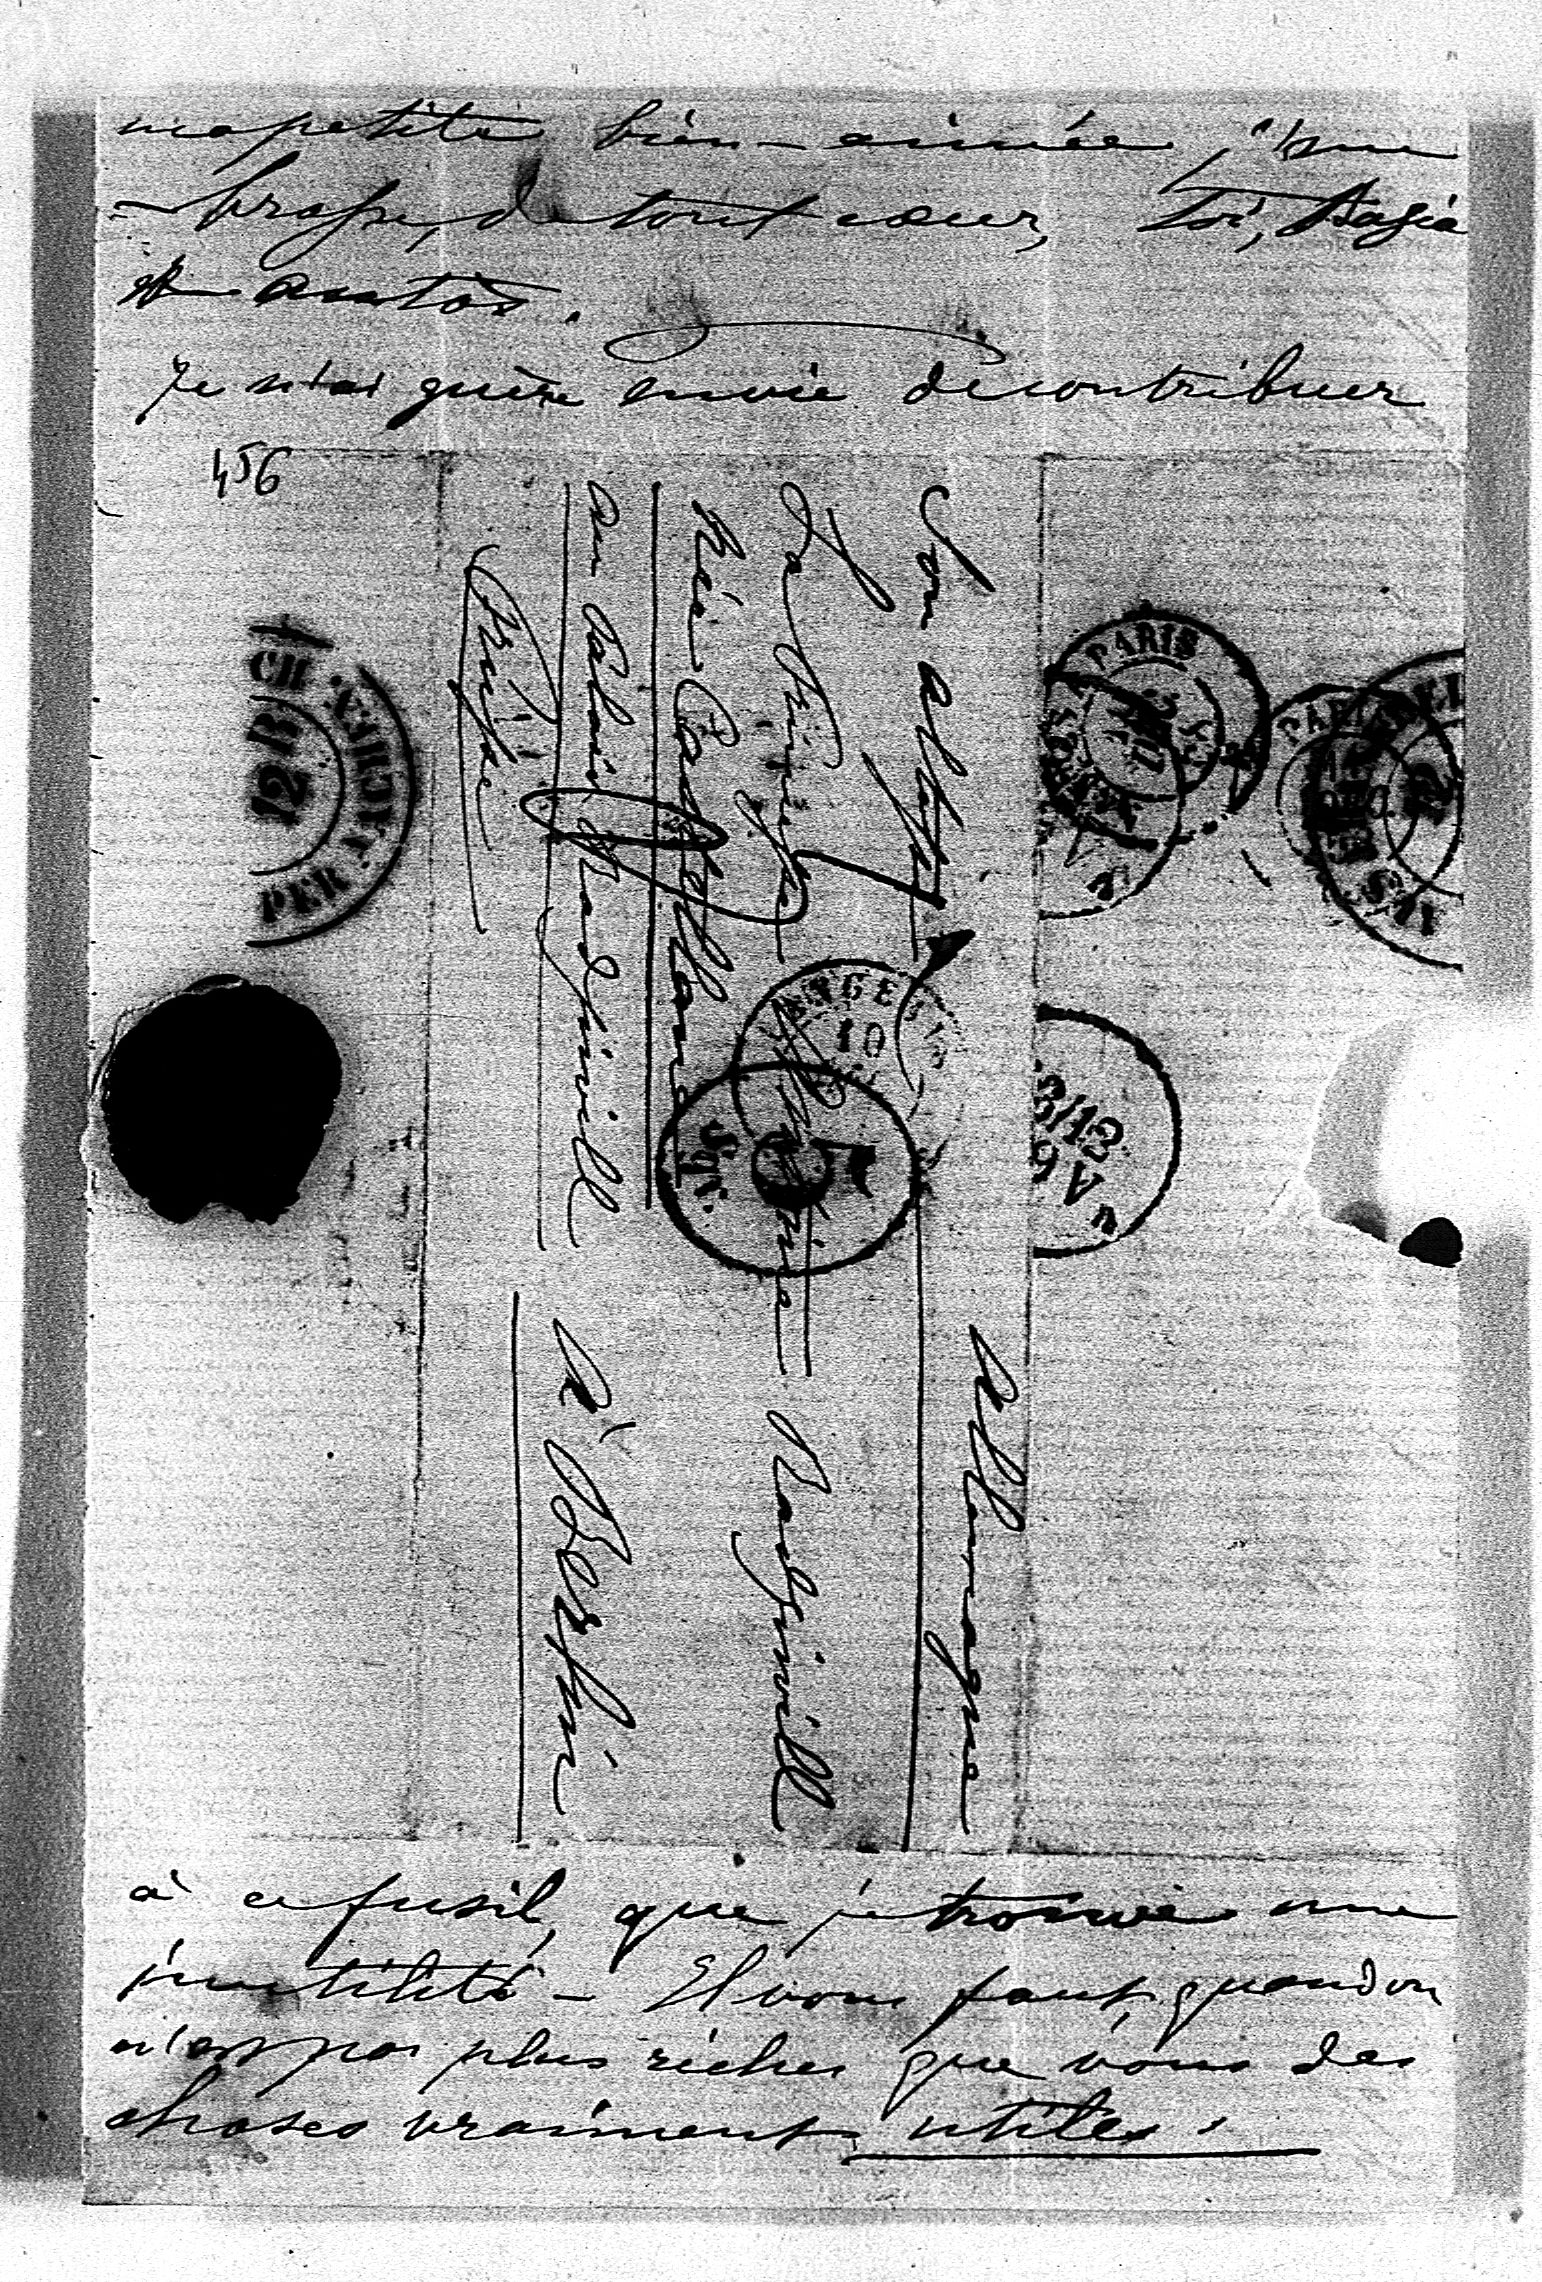 ma petite bien-aimée, j'em
-brasse, de tout cœur, toi,
et Antos.
Je n'ai guère envie de contribuer
456
Son altesse
La Princesse
née Castellane
au Palais Radziwill
Prusse
Radziwill
Allemagne
à Berlin
PARIS
PARIS
10
3/12
12
à ce fusil, que je trouve une
inutilité - Il vous faut, quand on
n'est pas plus riches que vous des
choses vraiment utiles.